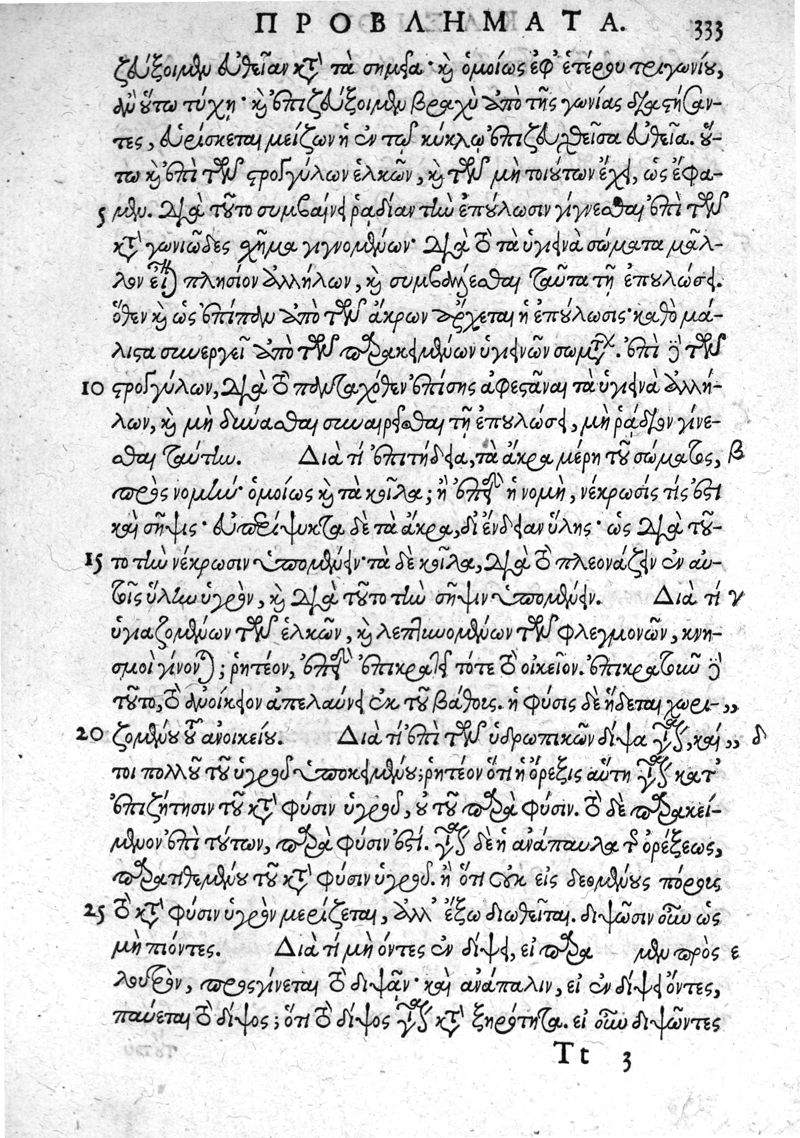 ΠΡΟΒΛΗΜΑΤΑ. 333
ζεύξοιμεν εὐθεῖαν κατὰ τὰ σημεῖα· καὶ ὁμοίως ἐφ' ἑτέρου τριγωνίου,
ἂν οὕτω τύχῃ· καὶ ἐπιζεύξοιμεν βραχὺ ἀπὸ τῆς γωνίας διαστήσαν-
τες, εὑρίσκεται μείζων ἡ ἐν τῷ κύκλῳ ἐπιζευχθεῖσα εὐθεῖα. οὕ-
τω καὶ ἐπὶ τῶν στρογγύλων ἑλκῶν, καὶ τῶν μὴ τοιούτων ἔχει, ὡς ἔφα-
5 μεν. διὰ τοῦτο συμβαίνει ῥαδίαν τὴν ἐπούλωσιν γίγνεσθαι ἐπὶ τῶν
κατὰ γωνιῶδες σχῆμα γιγνομένων· διὰ τὸ τὰ ὑγιεινὰ σώματα μᾶλ-
λον εἶναι πλησίον ἀλλήλων, καὶ συμβάλλεσθαι ταῦτα τῇ ἐπουλώσει.
ὅθεν καὶ ὡς ἐπίπαν ἀπὸ τῶν ἄκρων ἄρχεται ἡ ἐπούλωσις· καθὸ μά-
λιστα συνεργεῖ ἀπὸ τῶν παρακειμένων ὑγιεινῶν σωμάτων. ἐπὶ δὲ τῶν
10 στρογγύλων, διὰ τὸ πανταχόθεν ἐπίσης ἀφεστάναι τὰ ὑγιεινὰ ἀλλή-
λων, καὶ μὴ δύνασθαι συναίρεσθαι τῇ ἐπουλώσει, μὴ ῥάδιον γίνε-
σθαι ταύτην. Διὰ τί ἐπιτήδεια, τὰ ἄκρα μέρη τοῦ σώματος, β
πρὸς νομήν· ὁμοίως καὶ τὰ κοῖλα; ἢ ἐπειδὴ ἡ νομή, νέκρωσίς τίς ἐστι
καὶ σῆψις· εὐπερίψυκτα δὲ τὰ ἄκρα, δι' ἔνδειαν ὕλης· ὡς διὰ τοῦ-
15 το τὴν νέκρωσιν ὑπομένειν· τὰ δὲ κοῖλα, διὰ τὸ πλεονάζειν ἐν αὐ-
τοῖς ὕλην ὑγρὰν, καὶ διὰ τοῦτο τὴν σῆψιν ὑπομένειν. Διὰ τί γ
ὑγιαζομένων τῶν ἑλκῶν, καὶ λεπτυνομένων τῶν φλεγμονῶν, κνη-
σμοὶ γίνονται; ῥητέον, ἐπειδὴ ἐπικρατεῖ τότε τὸ οἰκεῖον. ἐπικρατοῦν δὲ
τοῦτο, τὸ ἀνοίκειον ἀπελαύνει ἐκ τοῦ βάθους. ἡ φύσις δὲ ἥδεται χωρι- „
20 ζομένου τοῦ ἀνοικείου. Διὰ τί ἐπὶ τῶν ὑδρωπικῶν δίψα ἐστὶ, καί „ δ
τοι πολλοῦ τοῦ ὑγροῦ ὑποκειμένου; ῥητέον ὅτι ἡ ὄρεξις αὕτη ἐστὶ κατ'
ἐπιζήτησιν τοῦ κατὰ φύσιν ὑγροῦ, οὐ τοῦ παρὰ φύσιν. τὸ δὲ παρακεί-
μενον ἐπὶ τούτων, παρὰ φύσιν ἐστί. ἔστι δὲ ἡ ἀνάπαυλα τῆς ὀρέξεως,
παρατιθεμένου τοῦ κατὰ φύσιν ὑγροῦ. ἢ ὅτι οὐκ εἰς δεομένους πόρους
25 τὸ κατὰ φύσιν ὑγρὸν μερίζεται, ἀλλ' ἔξω διωθεῖται. διψῶσιν οὖν ὡς
μὴ πιόντες. Διὰ τί μὴ ὄντες ἐν δίψει, εἰ παρα μεν πρὸς ε
λουτρὸν, προσγίνεται τὸ διψᾶν· καὶ ἀνάπαλιν, εἰ ἐν δίψει ὄντες,
παύεται τὸ δίψος; ὅτι τὸ δίψος ἐστὶ κατὰ ξηρότητα. εἰ οὖν διψῶντες
Tt 3